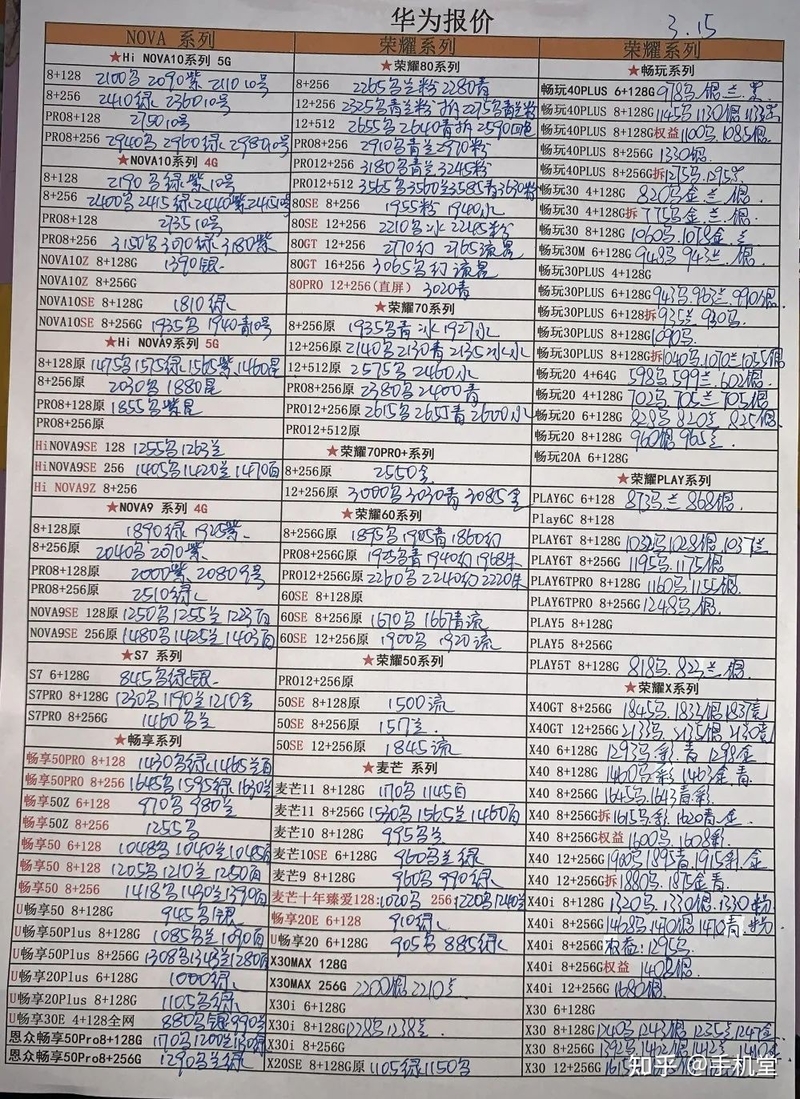 华为报价
3.15
NOVA 系列
★Hi NOVA10系列 5G
8+128 2100乌 2090紫 2110 10号
8+256 2410绿 2360 10号
PRO8+128 2750 10号
PRO8+256 2940乌 2960绿 2980 10号
★NOVA10系列 4G
8+128 2190乌绿紫 10号
8+256 2400乌 2415绿 2440紫 2415 10号
PRO8+128 2735 10号
PRO8+256 3150乌 3070绿 3180紫
NOVA10Z 8+128G 1390银
NOVA10Z 8+256G
NOVA10SE 8+128G 1810绿
NOVA10SE 8+256G 1935乌 1940青 10号
★Hi NOVA9系列 5G
8+128原 1475乌 1575绿 1565紫 1460昆
8+256原 2030乌 1880昆
PRO8+128原 1855乌紫昆
PRO8+256原
HiNOVA9SE 128 1255乌 1263兰
HiNOVA9SE 256 1405乌 1420兰 1470百
Hi NOVA9Z 8+256
★NOVA9 系列 4G
8+128原 1890绿 1925紫
8+256原 2040乌 2070紫
PRO8+128原 2000紫 2080 9号
PRO8+256原 2510绿
NOVA9SE 128原 1250乌 1255兰 1223百
NOVA9SE 256原 1480乌 1425兰 1403百
★S7 系列
S7 6+128G 845乌绿银
S7PRO 8+128G 1230乌 1190兰 1210金
S7PRO 8+256G 1460乌兰
★畅享系列
畅享50PRO 8+128 1430乌绿 1465兰百
畅享50PRO 8+256 1645乌 1595绿 1630
畅享50Z 6+128 970乌 980兰
畅享50Z 8+256 1255乌
畅享50 6+128 1048乌 1040兰 1045
畅享50 8+128 1205乌 1210兰 1250百
畅享50 8+256 1418乌 1430兰 1390百
U畅享50 8+128G 945乌银
U畅享50Plus 8+128G 1085乌兰 1090百
U畅享50Plus 8+256G 1308乌 1343兰 1280百
U畅享20Plus 6+128G 1000绿
U畅享20Plus 8+128G 1105乌绿
U畅享30E 4+128全网 880乌银 990兰
恩众畅享50Pro8+128G 1170乌 1200兰 1130绿
恩众畅享50Pro8+256G 1290乌兰绿
荣耀系列
★荣耀80系列
8+256 2265乌兰粉 2280青
12+256 2325乌青兰粉 拆 2275乌青兰粉
12+512 2655乌 2640青 拆 2590四色
PRO8+256 2910乌青兰 2970粉
PRO12+256 3180乌青兰 3245粉
PRO12+512 3565乌 3560兰 3585青 3630粉
80SE 8+256 1955粉 1940冰
80SE 12+256 2210乌冰 2245粉
80GT 12+256 2770幻 2765流星
80GT 16+256 3065乌幻流星
80PRO 12+256(直屏) 3020青
★荣耀70系列
8+256原 1935乌青冰 1927水
12+256原 2140乌 2130青 2135冰水
12+512原 2575乌 2460水
PRO8+256原 2380乌 2400青
PRO12+256原 2615乌 2655青 2600水
PRO12+512原
★荣耀70PRO+系列
8+256原 2550金
12+256原 3000乌 3030青 3085金
★荣耀60系列
8+256G原 1895乌 1905青 1860幻
PRO8+256G原 1925乌青 1940幻 1968朱
PRO12+256G原 2260乌 2240幻 2220朱
60SE 8+128原
60SE 8+256原 1670乌 1667青流
60SE 12+256原 1900乌 1920流
★荣耀50系列
PRO12+256原
50SE 8+128原 1500流
50SE 8+256原 1577兰
50SE 12+256原 1845流
★麦芒 系列
麦芒11 8+128G 1170乌 1145百
麦芒11 8+256G 1530乌 1565兰 1460百
麦芒10 8+128G 995乌兰
麦芒10SE 6+128G 960乌兰绿
麦芒9 8+128G 960乌 990绿
麦芒十年臻爱128:1020乌 256 1220乌 1240兰
畅享20E 6+128 910绿
U畅享20 6+128G 905乌 885绿
X30MAX 128G
X30MAX 256G 2200银 2210兰
X30i 6+128G
X30i 8+128G 1228乌 1238兰
X30i 8+256G
X20SE 8+128G 1105绿 1150乌
荣耀系列
★畅玩系列
畅玩40PLUS 6+128G 978乌银兰黑
畅玩40PLUS 8+128G 1145乌 1130银 1133黑
畅玩40PLUS 8+128G权益 1100乌 1085银
畅玩40PLUS 8+256G 1330银
畅玩40PLUS 8+256G拆 1275乌 1295黑
畅玩30 4+128G 820乌金兰银
畅玩30 4+128G拆 775乌金兰银
畅玩30 8+128G 1060乌 1078金兰
畅玩30M 6+128G 948乌 943兰银
畅玩30PLUS 4+128G
畅玩30PLUS 6+128G 943乌 963兰 990银
畅玩30PLUS 6+128拆 935兰 980乌
畅玩30PLUS 8+128G 1090乌
畅玩30PLUS 8+128G拆 1040乌 1070兰 1055银
畅玩20 4+64G 598乌 599兰 602银
畅玩20 4+128G 702乌 705兰 705银
畅玩20 6+128G 828乌 820兰 825银
畅玩20 8+128G 960银 965兰
畅玩20A 6+128G
★荣耀PLAY系列
PLAY6C 6+128 873乌兰 868银
Play6C 8+128
PLAY6T 8+128G 1032乌 1028银 1037兰
PLAY6T 8+256G 1195乌 1175银
PLAY6TPRO 8+128G 1160乌 1155银
PLAY6TPRO 8+256G 1248乌银
PLAY5 8+128G
PLAY5 8+256G
PLAY5T 8+128G 818乌 823兰银
★荣耀X系列
X40GT 8+256G 1845乌 1833银 1837竞
X40GT 12+256G 2133乌 2135银 2130竞
X40 6+128G 1293乌彩青 1298金
X40 8+128G 1460乌彩 1463金青
X40 8+256G 1645乌 1643青彩
X40 8+256G拆 1615乌彩 1620青金
X40 8+256G权益 1600乌 1608彩
X40 12+256G 1900乌 1895青 1915彩金
X40 12+256G拆 1880乌 1875金青
X40i 8+128G 1320乌 1330银 1330粉
X40i 8+256G 1468乌 1470银 1470青粉
X40i 8+256G权益:1295乌
X40i 8+256G权益 1408银
X40i 12+256G 1680银
X30 6+128G
X30 8+128G 1240乌 1243银 1235兰 1247金
X30 8+256G 1392乌 1402银 1412兰 1410金
X30 12+256G 1615乌
知乎 @手机堂